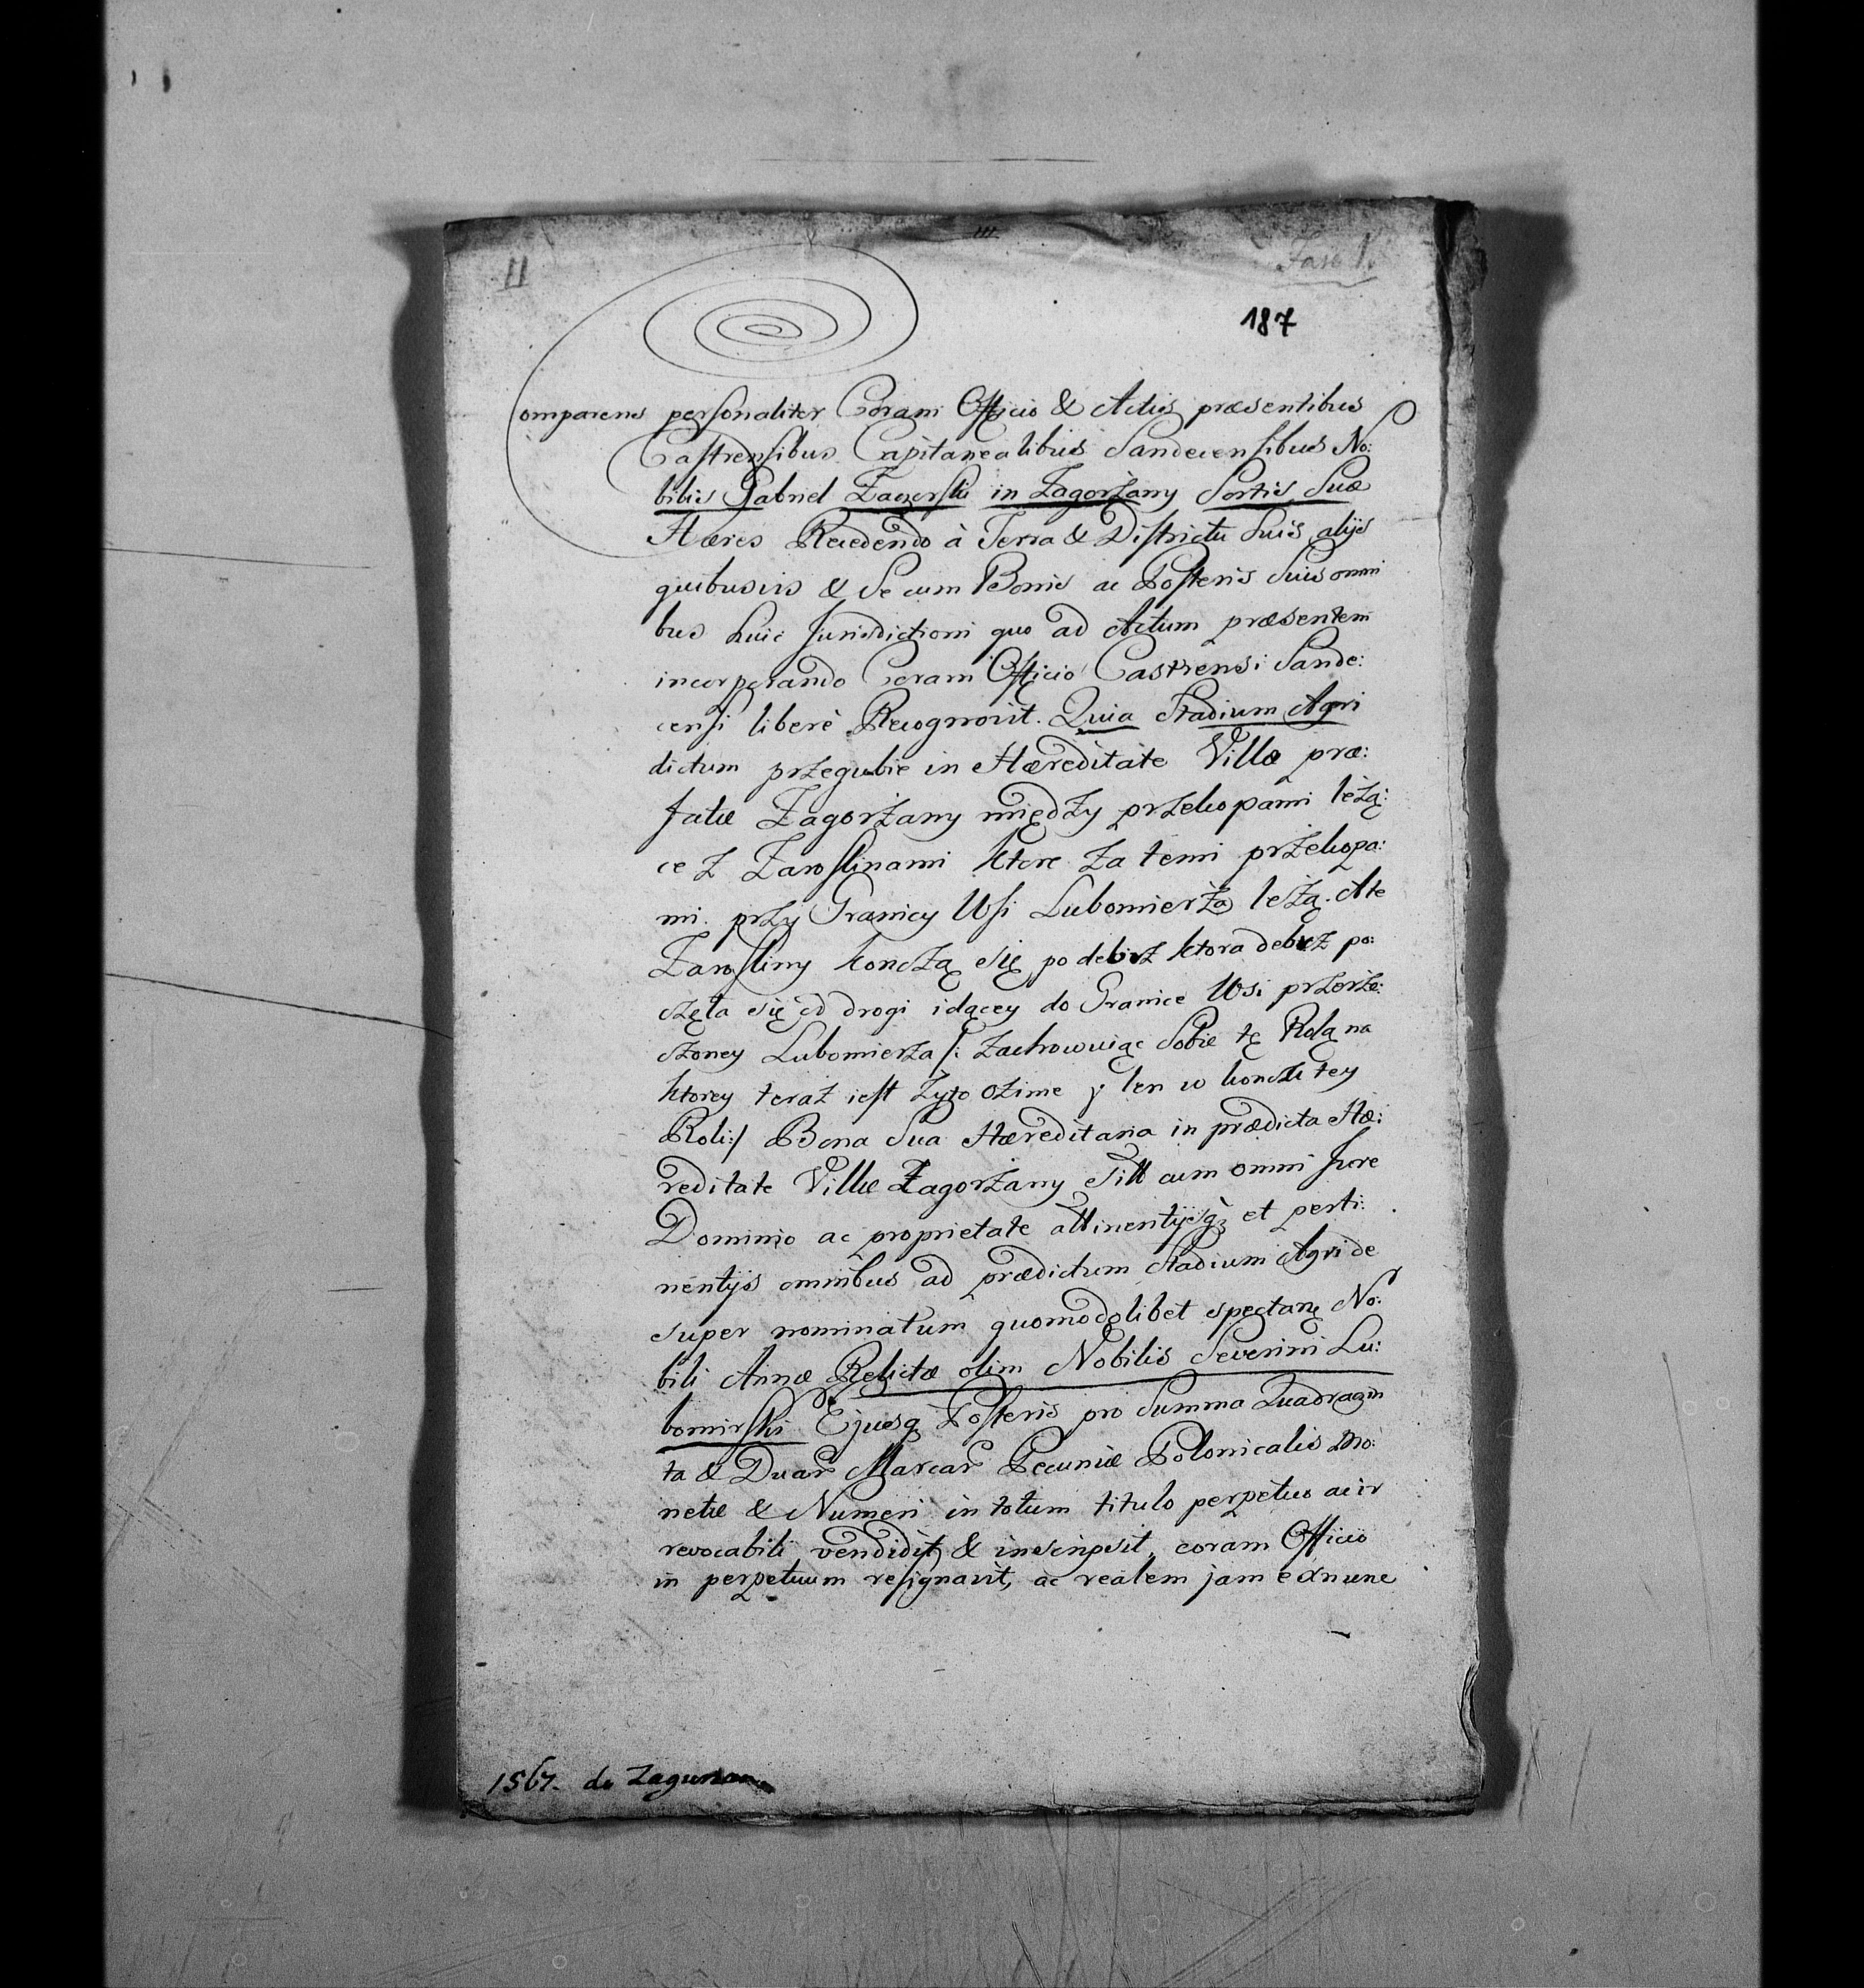 III
II
Fasc V.
187
Comparens personaliter Coram Officio & Actis præsentibus
Castrensibus Capitanealibus Sandecensibus No:
bilis Gabriel Zagorski in Zagorżany Sortis Suæ
Hæres Recedendo à Terra & Districtu Suis alijs
quibusvis & Se cum Bonis ac Posteris Suis omni
bus huic Jurisdictioni quo ad Actum præsentem
incorporando Coram Officio Castrensi Sande:
censi liberè Recognovit. Quia Stadium Agri
dictum przegubie in Hæreditate Villæ præ:
fatæ Zagorżany między przekopami leżą:
ce z Zaroślinami ktore za temi przekopa:
mi przy Granicy Wsi Lubomierża leżą. A te
Zarośliny konczą się po debrz ktora debrz po:
częła się od drogi idącey do Granice Wsi przerze:
czoney Lubomierza /: zachowuiąc Sobie tę Rolą na
ktorey teraz iest Zyto ozime y len w konczu tey
Roli:/ Bona Sua Hæreditaria in prædicta Hæ:
reditate Villæ Zagorżany Sitt cum omni Jure
Dominio ac proprietate attinentijsq3 et perti:
nentijs omnibus ad prædictum Stadium Agri de
super nominatum quomodolibet spectan No:
bili Annæ Relictæ olim Nobilis Severini Lu:
bomirski Ejusq3 Posteris pro Summa Quadragin
ta & Duar Marcar Pecuniæ Polonicalis Mo:
netæ & Numeri in totum titulo perpetuo ac ir
revocabili vendidit & inscripsit, coram Officio
in perpetuum resignavit, ac realem jam exnunc
1567. de